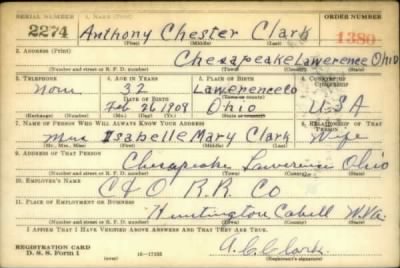 SERIAL NUMBER 1. NAME (Print) ORDER NUMBER
2274 Anthony Chester Clark 1380
(First) (Middle) (Last)
2. ADDRESS (Print)
Chesapeake Lawerence Ohio
(Number and street or R. F. D. number) (Town) (County) (State)
3. TELEPHONE 4. AGE IN YEARS 5. PLACE OF BIRTH 6. COUNTRY OF CITIZENSHIP
None 32 Lawerence Co
DATE OF BIRTH (Town or county)
Feb 26 1909 Ohio USA
(Exchange) (Number) (Mo.) (Day) (Yr.) (State or country)
7. NAME OF PERSON WHO WILL ALWAYS KNOW YOUR ADDRESS 8. RELATIONSHIP OF THAT PERSON
Mrs Isabelle Mary Clark Wife
(Mr., Mrs., Miss) (First) (Middle) (Last)
9. ADDRESS OF THAT PERSON
Chesapeake Lawerence Ohio
(Number and street or R. F. D. number) (Town) (County) (State)
10. EMPLOYER'S NAME
C & O R.R. Co
11. PLACE OF EMPLOYMENT OR BUSINESS
Huntington Cabell W.Va
(Number and street or R. F. D. number) (Town) (County) (State)
I AFFIRM THAT I HAVE VERIFIED ABOVE ANSWERS AND THAT THEY ARE TRUE.
REGISTRATION CARD
D. S. S. Form 1 16-17105 A.C. Clark
(Registrant's signature)